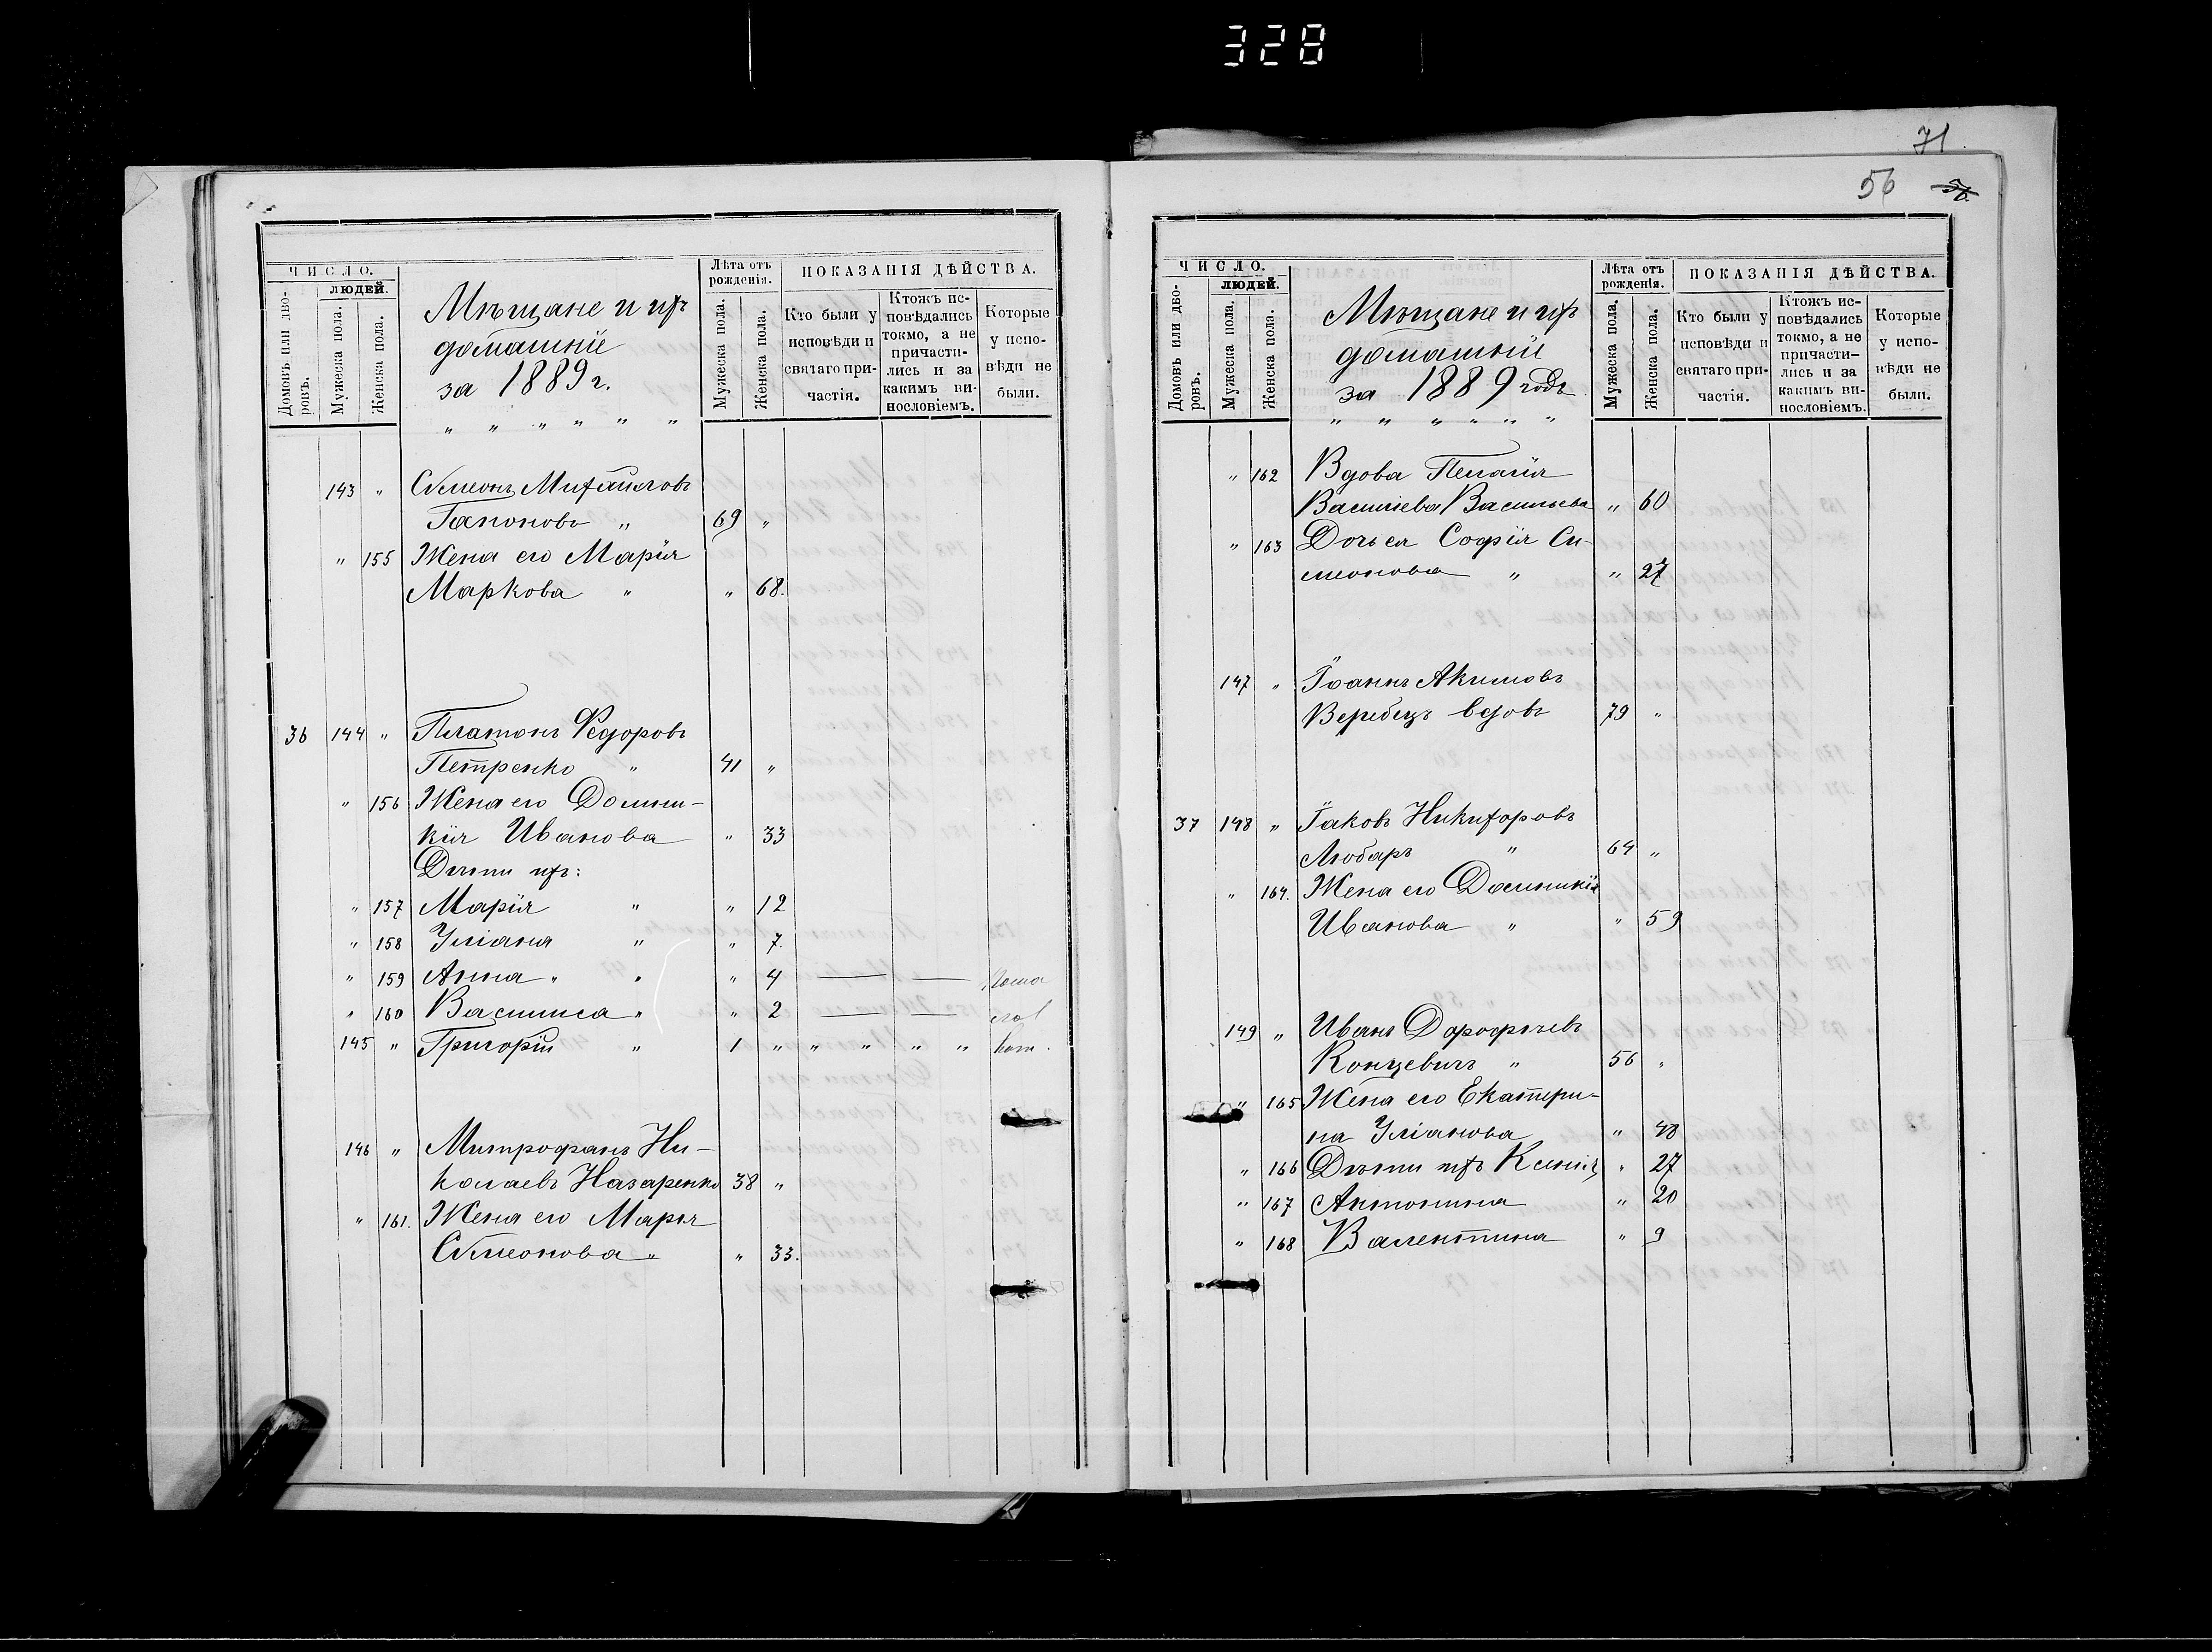 328
71
56
ЧИСЛО.
ЛЮДЕЙ.
Домовъ или дворовъ.
Мужеска пола.
Женска пола.
Мѣщане и ихъ
домашніе
за 1889 г.
" " " " " "
Лѣта отъ рожденія.
Мужеска пола.
Женска пола.
ПОКАЗАНІЯ ДѢЙСТВА.
Кто были у исповѣди и святаго причастія.
Ктожъ исповѣдались токмо, а не причастились и за какимъ винословіемъ.
Которые у исповѣди не были.
143 " Сѵмеонъ Михайловъ
Гапоновъ " 69 "
" 155 Жена его Марія
Маркова " " 68.
36 144 " Платонъ Ѳедоровъ
Петренко " 41 "
" 156 Жена его Домни-
кія Иванова " 33
Дѣти ихъ:
" 157 Марія " " 12
" 158 Уліана " " 7.
" 159 Анна " " " 4 — —
" 160 Василиса " " 2 — —
145 " Григорій " 1 " " " " "
146 " Митрофанъ Ни-
колаевъ Назаренко 38 "
" 161. Жена его Марія
Сѵмеонова " " 33.
ЧИСЛО.
ЛЮДЕЙ.
Домовъ или дворовъ.
Мужеска пола.
Женска пола.
Мѣщане и ихъ
домашніе
за 1889 годъ
" " " " " "
Лѣта отъ рожденія.
Мужеска пола.
Женска пола.
ПОКАЗАНІЯ ДѢЙСТВА.
Кто были у исповѣди и святаго причастія.
Ктожъ исповѣдались токмо, а не причастились и за какимъ винословіемъ.
Которые у исповѣди не были.
" 162 Вдова Пелагія
Василіева Васильева " 60
" 163 Дочь ея Софія Си-
меонова " " 27
147 " Іоаннъ Акимовъ
Веребецъ вдовъ 79 "
37 148 " Іаковъ Никифоровъ
Любаръ " 64 "
" 164. Жена его Домникія
Иванова " " 59
149 " Иванъ Дорофѣевъ
Концевичъ " 56 "
" 165 Жена его Екатери-
на Уліанова " 48
" 166 Дѣти ихъ Ксенія " 27
" 167 Антонина " 20
" 168 Валентина " 9